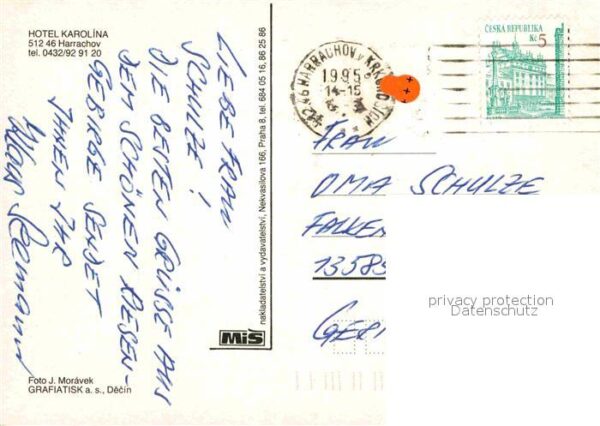 HOTEL KAROLÍNA
512 46 Harrachov
tel. 0432/92 91 20
LIEBE FRAU
SCHULZE !
DIE BESTEN GRÜSSE AUS
DEM SCHÖNEN RIESEN-
GEBIRGE SENDET
IHNEN IHR
Foto J. Morávek
GRAFIATISK a. s., Děčín
MiŠ
nakladatelství a vydavatelství, Nekvasilova 166, Praha 8, tel. 684 05 16, 86 25 86
512 46 HARRACHOV V KRKONOŠÍCH
1995
14-15
ČESKÁ REPUBLIKA
Kč 5
FRAU
OMA SCHULZE
FALKEN
13585
GER
privacy protection
Datenschutz